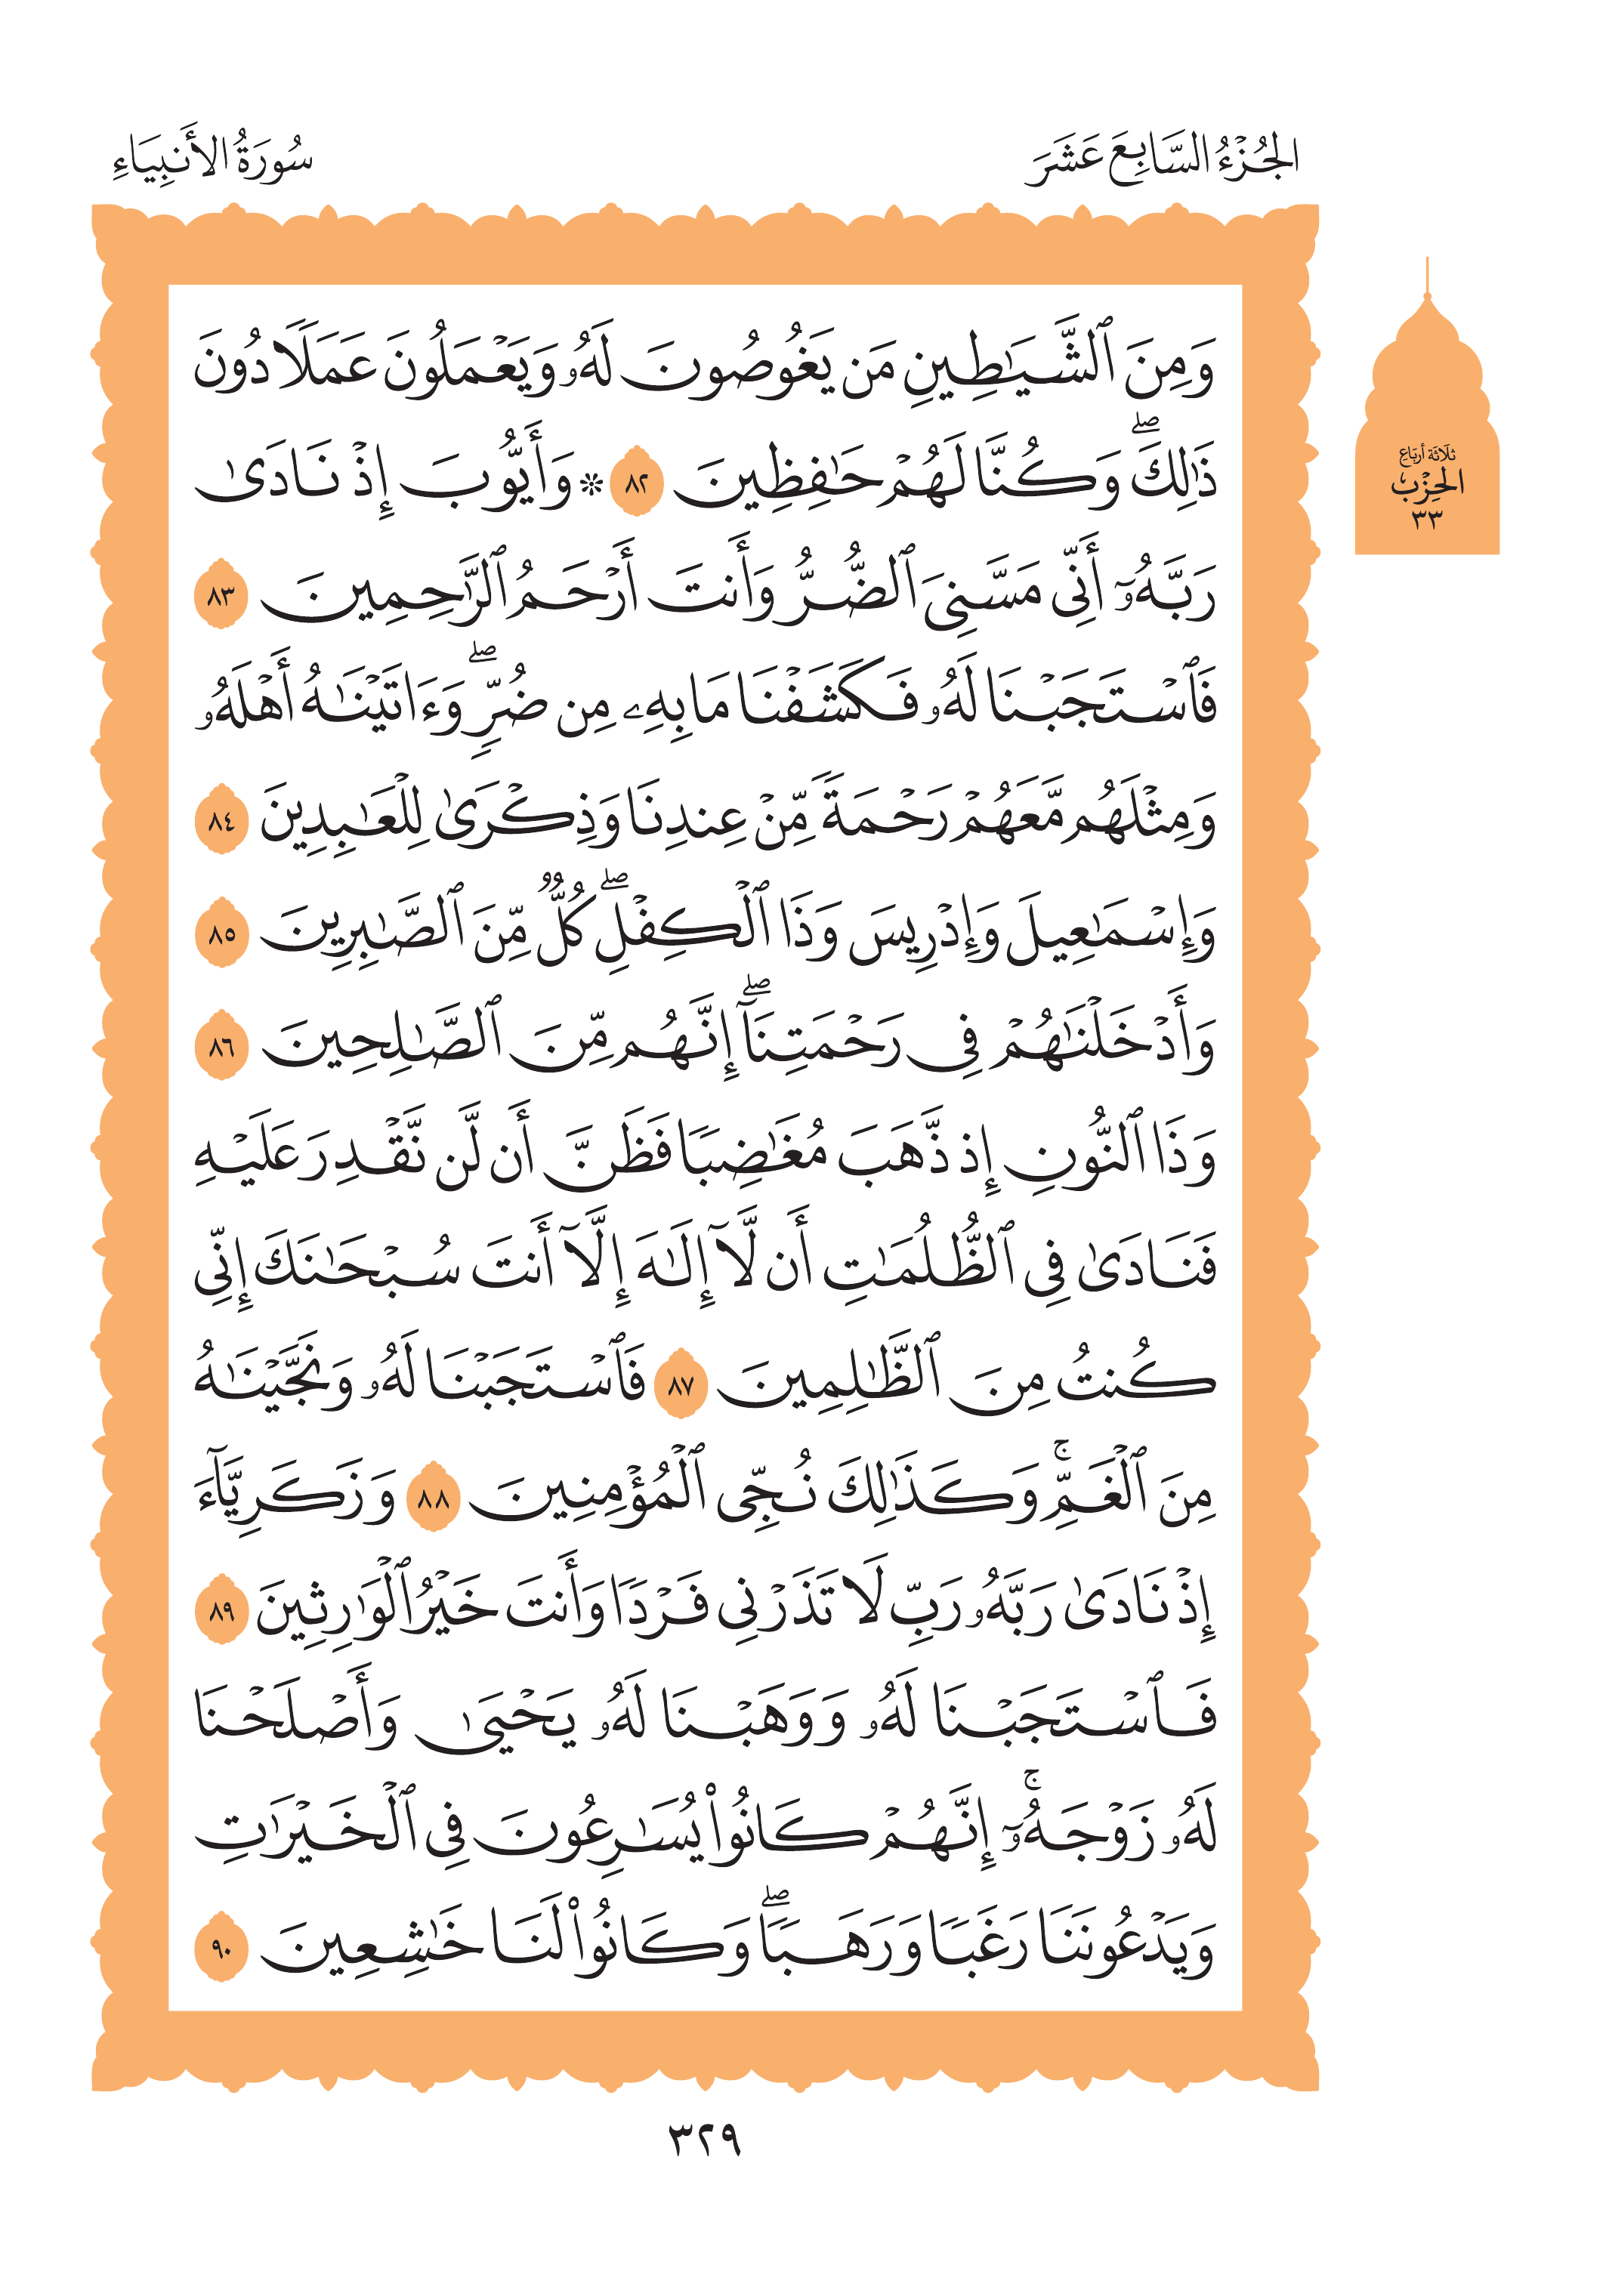 الجُزْءُ السَّابِعَ عَشَرَ
سُورَةُ الأَنبِيَاءِ
وَمِنَ ٱلشَّيَٰطِينِ مَن يَغُوصُونَ لَهُۥ وَيَعْمَلُونَ عَمَلًا دُونَ
ذَٰلِكَۖ وَكُنَّا لَهُمْ حَٰفِظِينَ ٨٢ ۞ وَأَيُّوبَ إِذْ نَادَىٰ
رَبَّهُۥٓ أَنِّي مَسَّنِيَ ٱلضُّرُّ وَأَنتَ أَرْحَمُ ٱلرَّٰحِمِينَ ٨٣
فَٱسْتَجَبْنَا لَهُۥ فَكَشَفْنَا مَا بِهِۦ مِن ضُرّٖۖ وَءَاتَيْنَٰهُ أَهْلَهُۥ
وَمِثْلَهُم مَّعَهُمْ رَحْمَةً مِّنْ عِندِنَا وَذِكْرَىٰ لِلْعَٰبِدِينَ ٨٤
وَإِسْمَٰعِيلَ وَإِدْرِيسَ وَذَا ٱلْكِفْلِۖ كُلٌّ مِّنَ ٱلصَّٰبِرِينَ ٨٥
وَأَدْخَلْنَٰهُمْ فِي رَحْمَتِنَآۖ إِنَّهُم مِّنَ ٱلصَّٰلِحِينَ ٨٦
وَذَا ٱلنُّونِ إِذ ذَّهَبَ مُغَٰضِبًا فَظَنَّ أَن لَّن نَّقْدِرَ عَلَيْهِ
فَنَادَىٰ فِي ٱلظُّلُمَٰتِ أَن لَّآ إِلَٰهَ إِلَّآ أَنتَ سُبْحَٰنَكَ إِنِّي
كُنتُ مِنَ ٱلظَّٰلِمِينَ ٨٧ فَٱسْتَجَبْنَا لَهُۥ وَنَجَّيْنَٰهُ
مِنَ ٱلْغَمِّۚ وَكَذَٰلِكَ نُـۨجِي ٱلْمُؤْمِنِينَ ٨٨ وَزَكَرِيَّآءَ
إِذْ نَادَىٰ رَبَّهُۥ رَبِّ لَا تَذَرْنِي فَرْدًا وَأَنتَ خَيْرُ ٱلْوَٰرِثِينَ ٨٩
فَٱسْتَجَبْنَا لَهُۥ وَوَهَبْنَا لَهُۥ يَحْيَىٰ وَأَصْلَحْنَا
لَهُۥ زَوْجَهُۥٓۚ إِنَّهُمْ كَانُوا۟ يُسَٰرِعُونَ فِي ٱلْخَيْرَٰتِ
وَيَدْعُونَنَا رَغَبًا وَرَهَبًاۖ وَكَانُوا۟ لَنَا خَٰشِعِينَ ٩٠
ثلاثة أرباع
الحِزْب
٣٣
٣٢٩